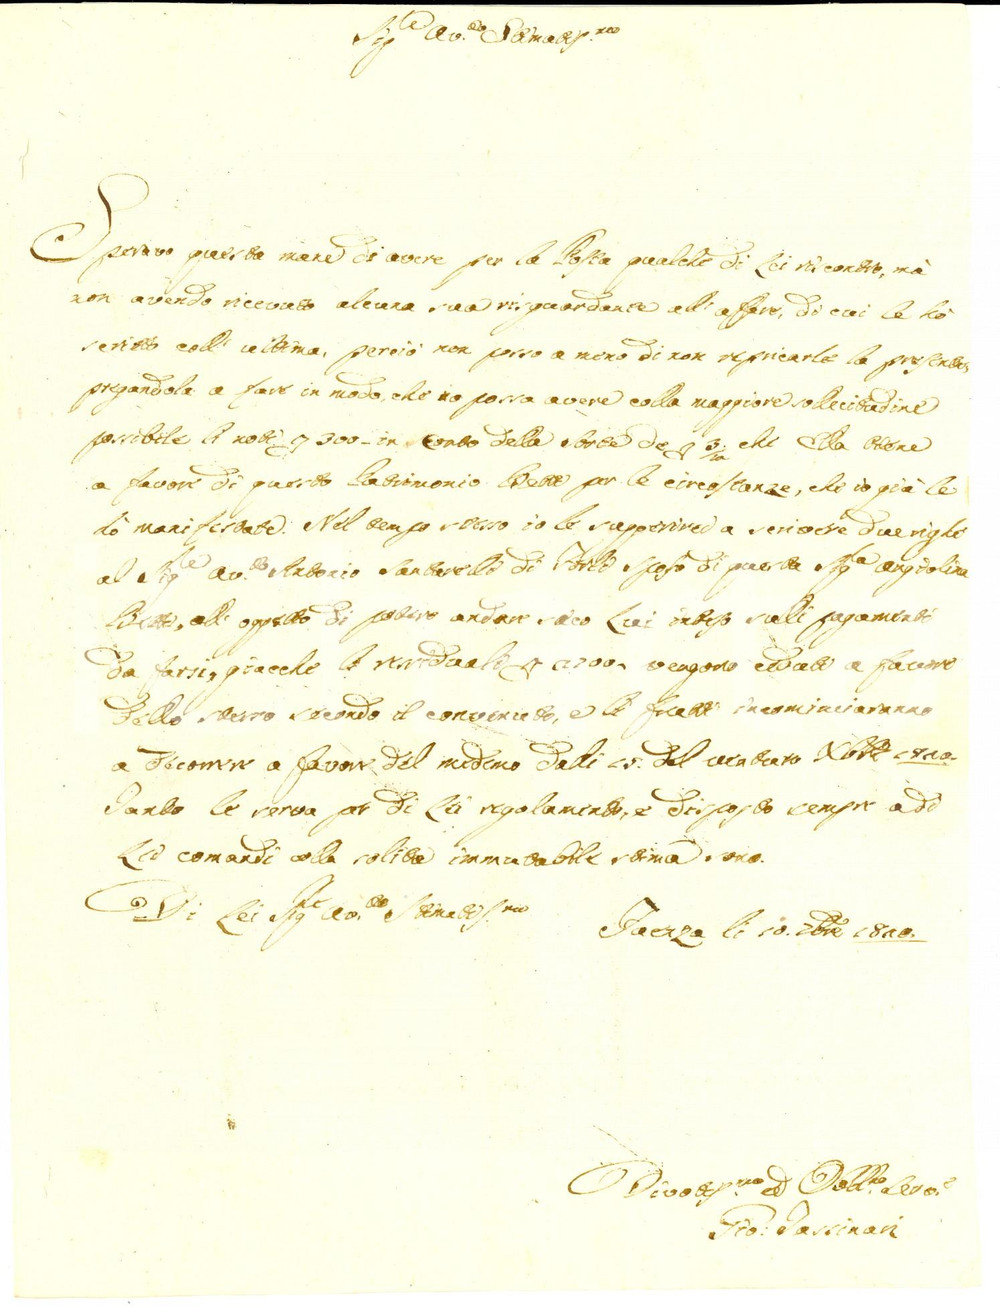 Sig.le Av.to Stimatis.mo
Speravo questa mane di avere per la Posta qualche di Lei riscontro, mà
non avendo ricevuto alcuna sua risguardante all' affare, di cui le hò
scritto coll' ultima, perciò non posso a meno di non replicarle la presente,
pregandola a fare in modo, che io possa avere colla maggiore sollecitudine
possibile li noti 300 in conto della che Ella tiene
a favore di questo Patrimonio Betti per le circostanze, che io già le
hò manifestate. Nel tempo stesso io le suggerirei a scrivere due righe
al Sig.le Av.to Antonio Santarelli di Forlì sposo di questa Sig.la Angiolina
Betti, all' oggetto di potere andare seco Lui inteso sulli pagamenti
da farsi, giacchè li residuali 1700 vengono a favore
dello stesso secondo il convenuto, e li frutti incominciaranno
a decorrere a favore del medemo dalli 15. del venturo Xbre 1810.
Tanto le serva per di Lei regolamento, e disposto sempre a di
Lei comandi colla solita immutabile stima sono.
Di Lei Sig.le Av.to Stimatis.mo
Faenza li 10. 9bre 1810.
Divotis.mo ed Obbl.mo Servo.e
Gio: Tassinari